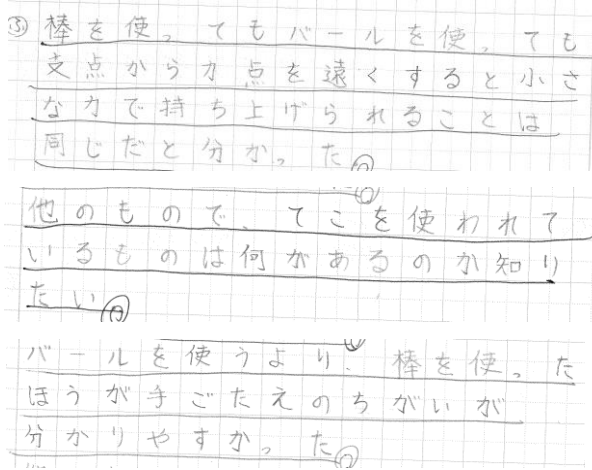 ふ 棒を使ってもバールを使っても
支点から力点を遠くすると小さ
な力で持ち上げられることは
同じだと分かった。
他のもので、てこを使われて
いるものは何があるのか知り
たい。
バールを使うより、棒を使った
ほうが手ごたえのちがいが
分かりやすかった。